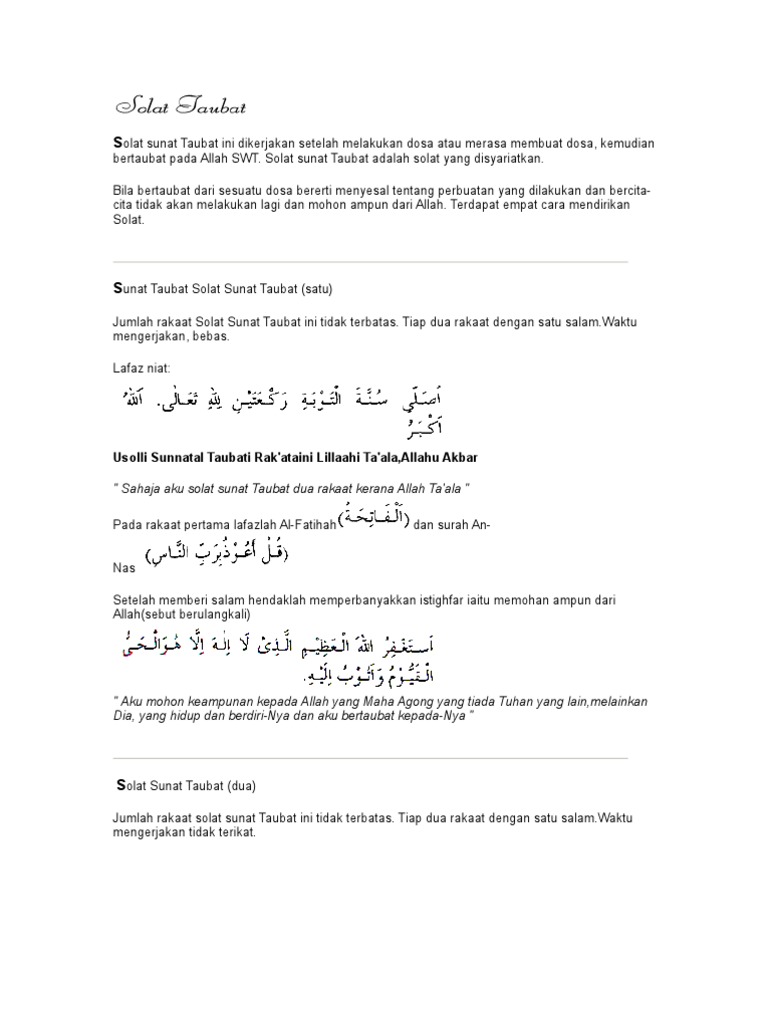 Solat Taubat
Solat sunat Taubat ini dikerjakan setelah melakukan dosa atau merasa membuat dosa, kemudian
bertaubat pada Allah SWT. Solat sunat Taubat adalah solat yang disyariatkan.
Bila bertaubat dari sesuatu dosa bererti menyesal tentang perbuatan yang dilakukan dan bercita-
cita tidak akan melakukan lagi dan mohon ampun dari Allah. Terdapat empat cara mendirikan
Solat.
Sunat Taubat Solat Sunat Taubat (satu)
Jumlah rakaat Solat Sunat Taubat ini tidak terbatas. Tiap dua rakaat dengan satu salam.Waktu
mengerjakan, bebas.
Lafaz niat:
اُصَلِّي سُنَّةَ الْتَوْبَةِ رَكْعَتَيْنِ لِلّٰهِ تَعَالٰى. اَللّٰهُ
اَكْبَرُ
Usolli Sunnatal Taubati Rak'ataini Lillaahi Ta'ala,Allahu Akbar
" Sahaja aku solat sunat Taubat dua rakaat kerana Allah Ta'ala "
Pada rakaat pertama lafazlah Al-Fatihah (اَلْفَاتِحَةُ) dan surah An-
Nas (قُلْ أَعُوْذُبِرَبِّ النَّاسِ)
Setelah memberi salam hendaklah memperbanyakkan istighfar iaitu memohan ampun dari
Allah(sebut berulangkali)
اَسْتَغْفِرُ اللّٰهَ الْعَظِيْمِ الَّذِيْ لَا اِلٰهَ اِلَّا هُوَالْحَىُّ
الْقَيُّوْمُ وَاَتُوْبُ اِلَيْهِ.
" Aku mohon keampunan kepada Allah yang Maha Agong yang tiada Tuhan yang lain,melainkan
Dia, yang hidup dan berdiri-Nya dan aku bertaubat kepada-Nya "
Solat Sunat Taubat (dua)
Jumlah rakaat solat sunat Taubat ini tidak terbatas. Tiap dua rakaat dengan satu salam.Waktu
mengerjakan tidak terikat.